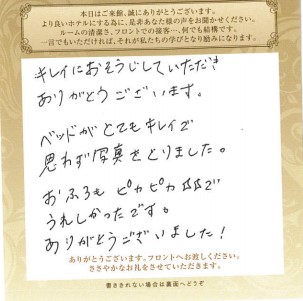 本日はご来館、誠にありがとうございます。
より良いホテルにする為に、是非あなた様の声をお聞かせください。
ルームの清潔さ、フロントでの接客…、何でも結構です。
一言でもいただければ、それが私たちの学びとなり励みになります。
キレイにおそうじしていただき
ありがとうございます。
ベッドがとてもキレイで
思わず写真をとりました。
おふろも ピカピカで
うれしかったです。
ありがとうございました!
ありがとうございます。フロントへお渡しください。
ささやかなお礼をさせていただきます。
書ききれない場合は裏面へどうぞ